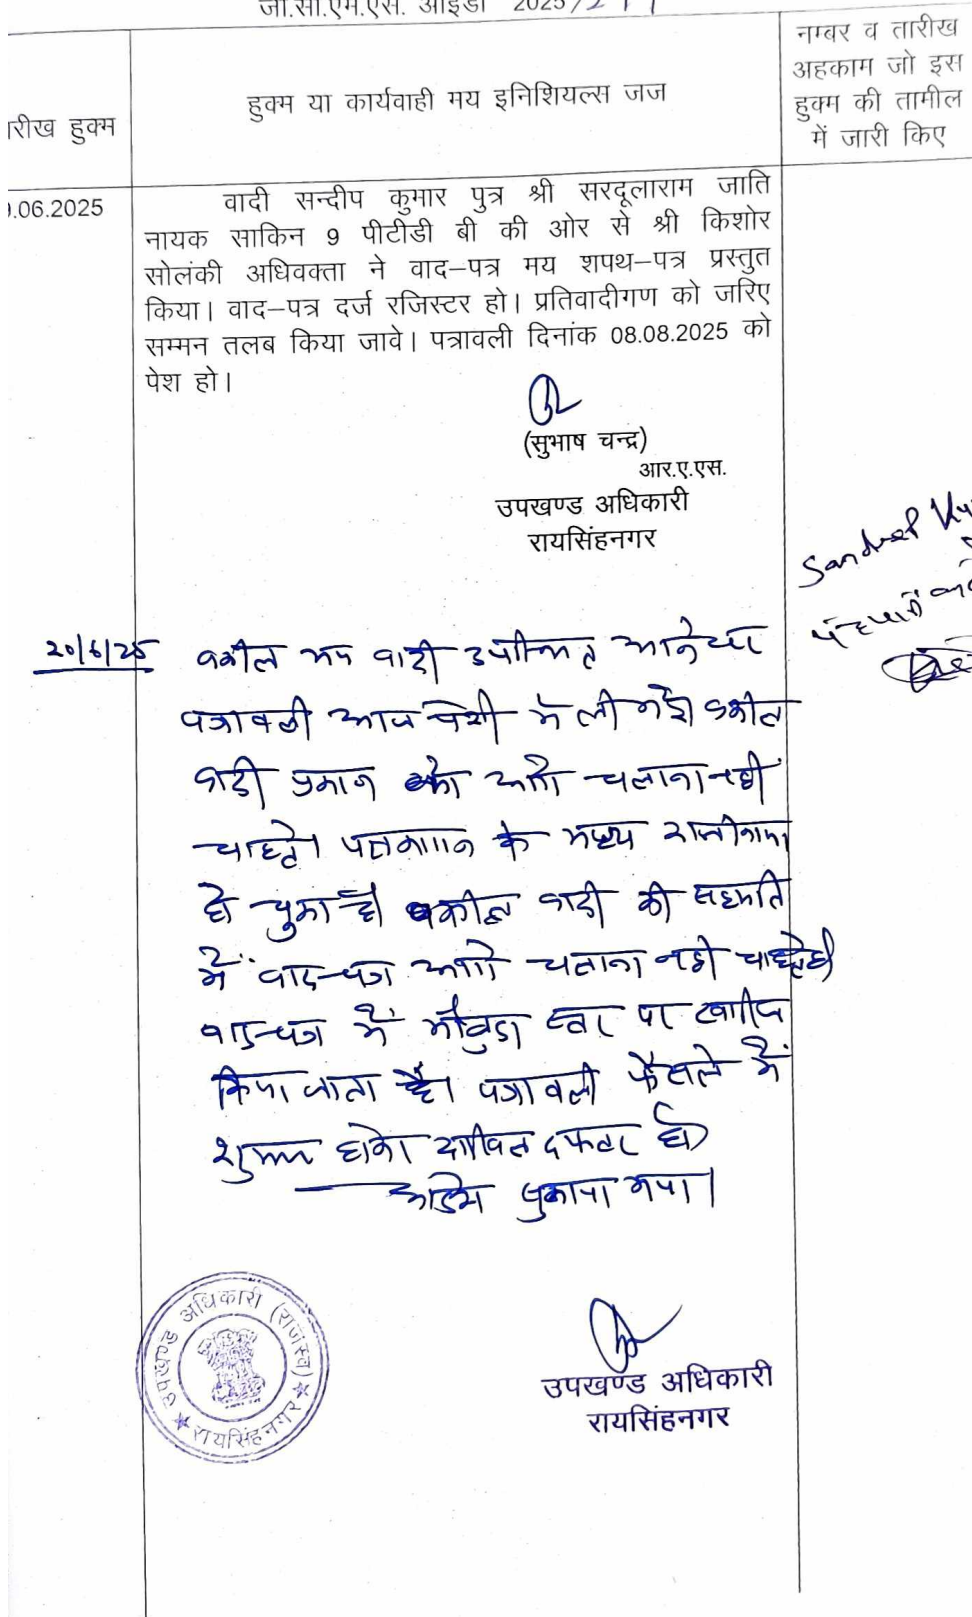 जी.सी.एम.एस. आईडी 2025/
रीख हुक्म
हुक्म या कार्यवाही मय इनिशियल्स जज
नम्बर व तारीख
अहकाम जो इस
हुक्म की तामील
में जारी किए
9.06.2025
वादी सन्दीप कुमार पुत्र श्री सरदूलाराम जाति
नायक साकिन 9 पीटीडी बी की ओर से श्री किशोर
सोलंकी अधिवक्ता ने वाद–पत्र मय शपथ–पत्र प्रस्तुत
किया। वाद–पत्र दर्ज रजिस्टर हो। प्रतिवादीगण को जरिए
सम्मन तलब किया जावे। पत्रावली दिनांक 08.08.2025 को
पेश हो।
(सुभाष चन्द्र)
आर.ए.एस.
उपखण्ड अधिकारी
रायसिंहनगर
20/6/25
वकील मय वादी उपस्थित
पत्रावली आज पेशी में ली गई। वकील
वादी आगे चलाना नहीं
चाहते। के मध्य राजीनामा
हो चुका है। वकील वादी की सहमति
में वाद–पत्र आगे चलाना नहीं चाहते है।
वाद–पत्र में मौजुदा स्तर पर खारीज
किया जाता है। पत्रावली फैसले में
शुमार होकर दाखिल दफतर हो।
सुनाया गया।
उपखण्ड अधिकारी (राजस्व)
★ रायसिंहनगर ★
उपखण्ड अधिकारी
रायसिंहनगर